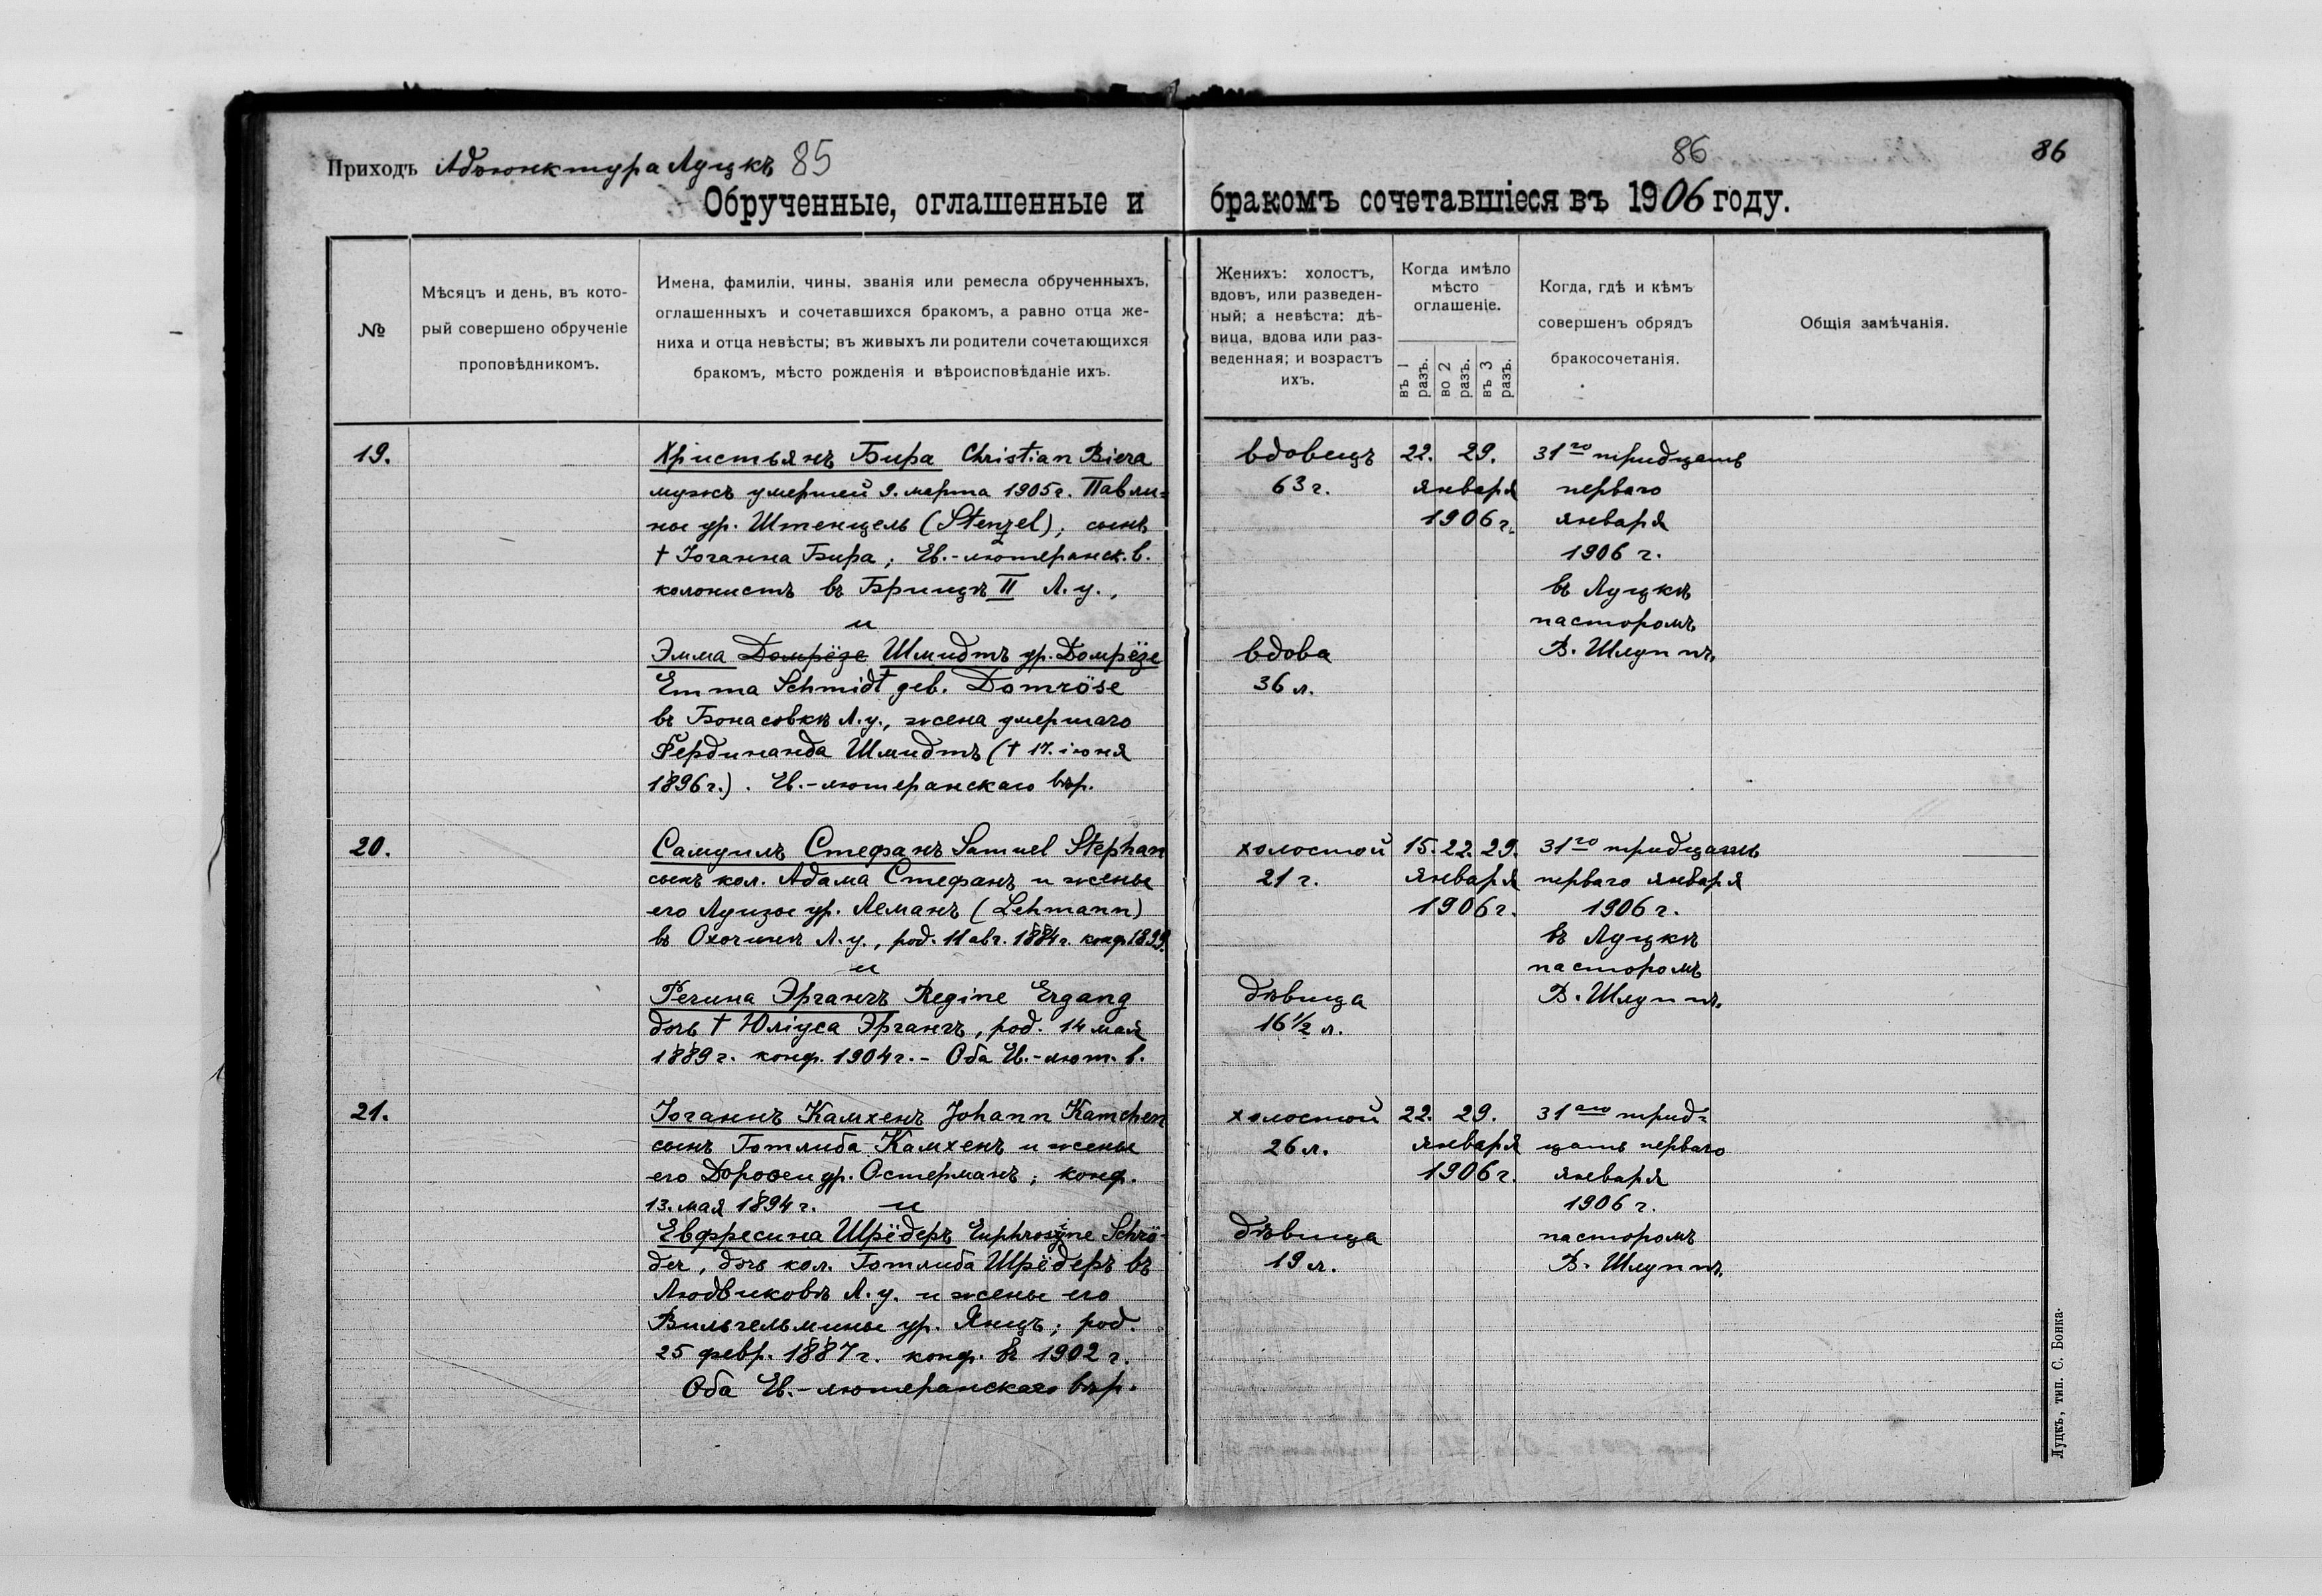 Приходъ Адъюнктура Луцкъ 85
86
86
Обрученные, оглашенные и бракомъ сочетавшіеся въ 1906 году.
№
Мѣсяцъ и день, въ кото-
рый совершено обрученіе
проповѣдникомъ.
Имена, фамиліи, чины, званія или ремесла обрученныхъ,
оглашенныхъ и сочетавшихся бракомъ, а равно отца же-
ниха и отца невѣсты; въ живыхъ ли родители сочетающихся
бракомъ, мѣсто рожденія и вѣроисповѣданіе ихъ.
Женихъ: холостъ,
вдовъ, или разведен-
ный; а невѣста: дѣ-
вица, вдова или раз-
веденная; и возрастъ
ихъ.
Когда имѣло
мѣсто
оглашеніе.
въ 1
разъ.
во 2
разъ.
въ 3
разъ.
Когда, гдѣ и кѣмъ
совершенъ обрядъ
бракосочетанія.
Общія замѣчанія.
19.
Христьянъ Бира Christian Biera
мужъ умершей 9. марта 1905 г. Павли-
ны ур. Штенцель (Stenzel); сынъ
† Іоганна Бира; Ев.-лютеранск. в.
колонистъ въ Брищѣ II Л. у.,
и
Эмма Домрёзе Шмидтъ ур. Домрёзе
Emma Schmidt geb. Domröse
въ Бонасовкѣ Л. у., жена умершаго
Фердинанда Шмидтъ († 17. іюня
1896 г.). Ев.-лютеранскаго вѣр.
вдовецъ
63 г.
вдова
36 л.
22. 29.
января
1906 г.
31го тридцать
перваго
января
1906 г.
въ Луцкѣ
пасторомъ
В. Шлуппъ.
20.
Самуилъ Стефанъ Samuel Stephan
сынъ кол. Адама Стефанъ и жены
его Луизы ур. Леманъ (Lehmann)
въ Охочинѣ Л. у., род. 11 авг. 1884 г. конф. 1899.
и
Регина Эргангъ Regine Ergang
дочь † Юліуса Эргангъ, род. 14 мая
1889 г. конф. 1904 г. - Оба Ев.-лют. в.
холостой
21 г.
дѣвица
16 1/2 л.
15. 22. 29.
января
1906 г.
31го тридцать
перваго января
1906 г.
въ Луцкѣ
пасторомъ
В. Шлуппъ.
21.
Іоганнъ Камхенъ Johann Kamchen
сынъ Готлиба Камхенъ и жены
его Доровеи ур. Остерманъ; конф.
13. мая 1894 г. и
Евфресина Шрёдеръ Euphrosine Schrö-
der, дочь кол. Готлиба Шрёдеръ въ
Людвиковѣ Л. у. и жены его
Вильгельмины ур. Янцъ; род.
25 февр. 1887 г. конф. въ 1902 г.
Оба Ев.-лютеранскаго вѣр.
холостой
26 л.
дѣвица
19 л.
22. 29.
января
1906 г.
31аго трид-
цать перваго
января
1906 г.
пасторомъ
В. Шлуппъ.
Луцкъ, тип. С. Бонка.